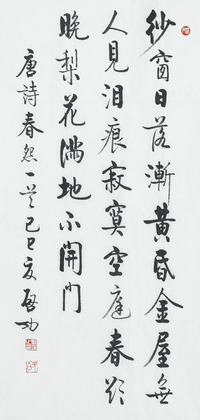 纱窗日落渐黄昏金屋无
人见泪痕寂寞空庭春欲
晚梨花满地不开门
唐诗春怨一首己巳夏启功